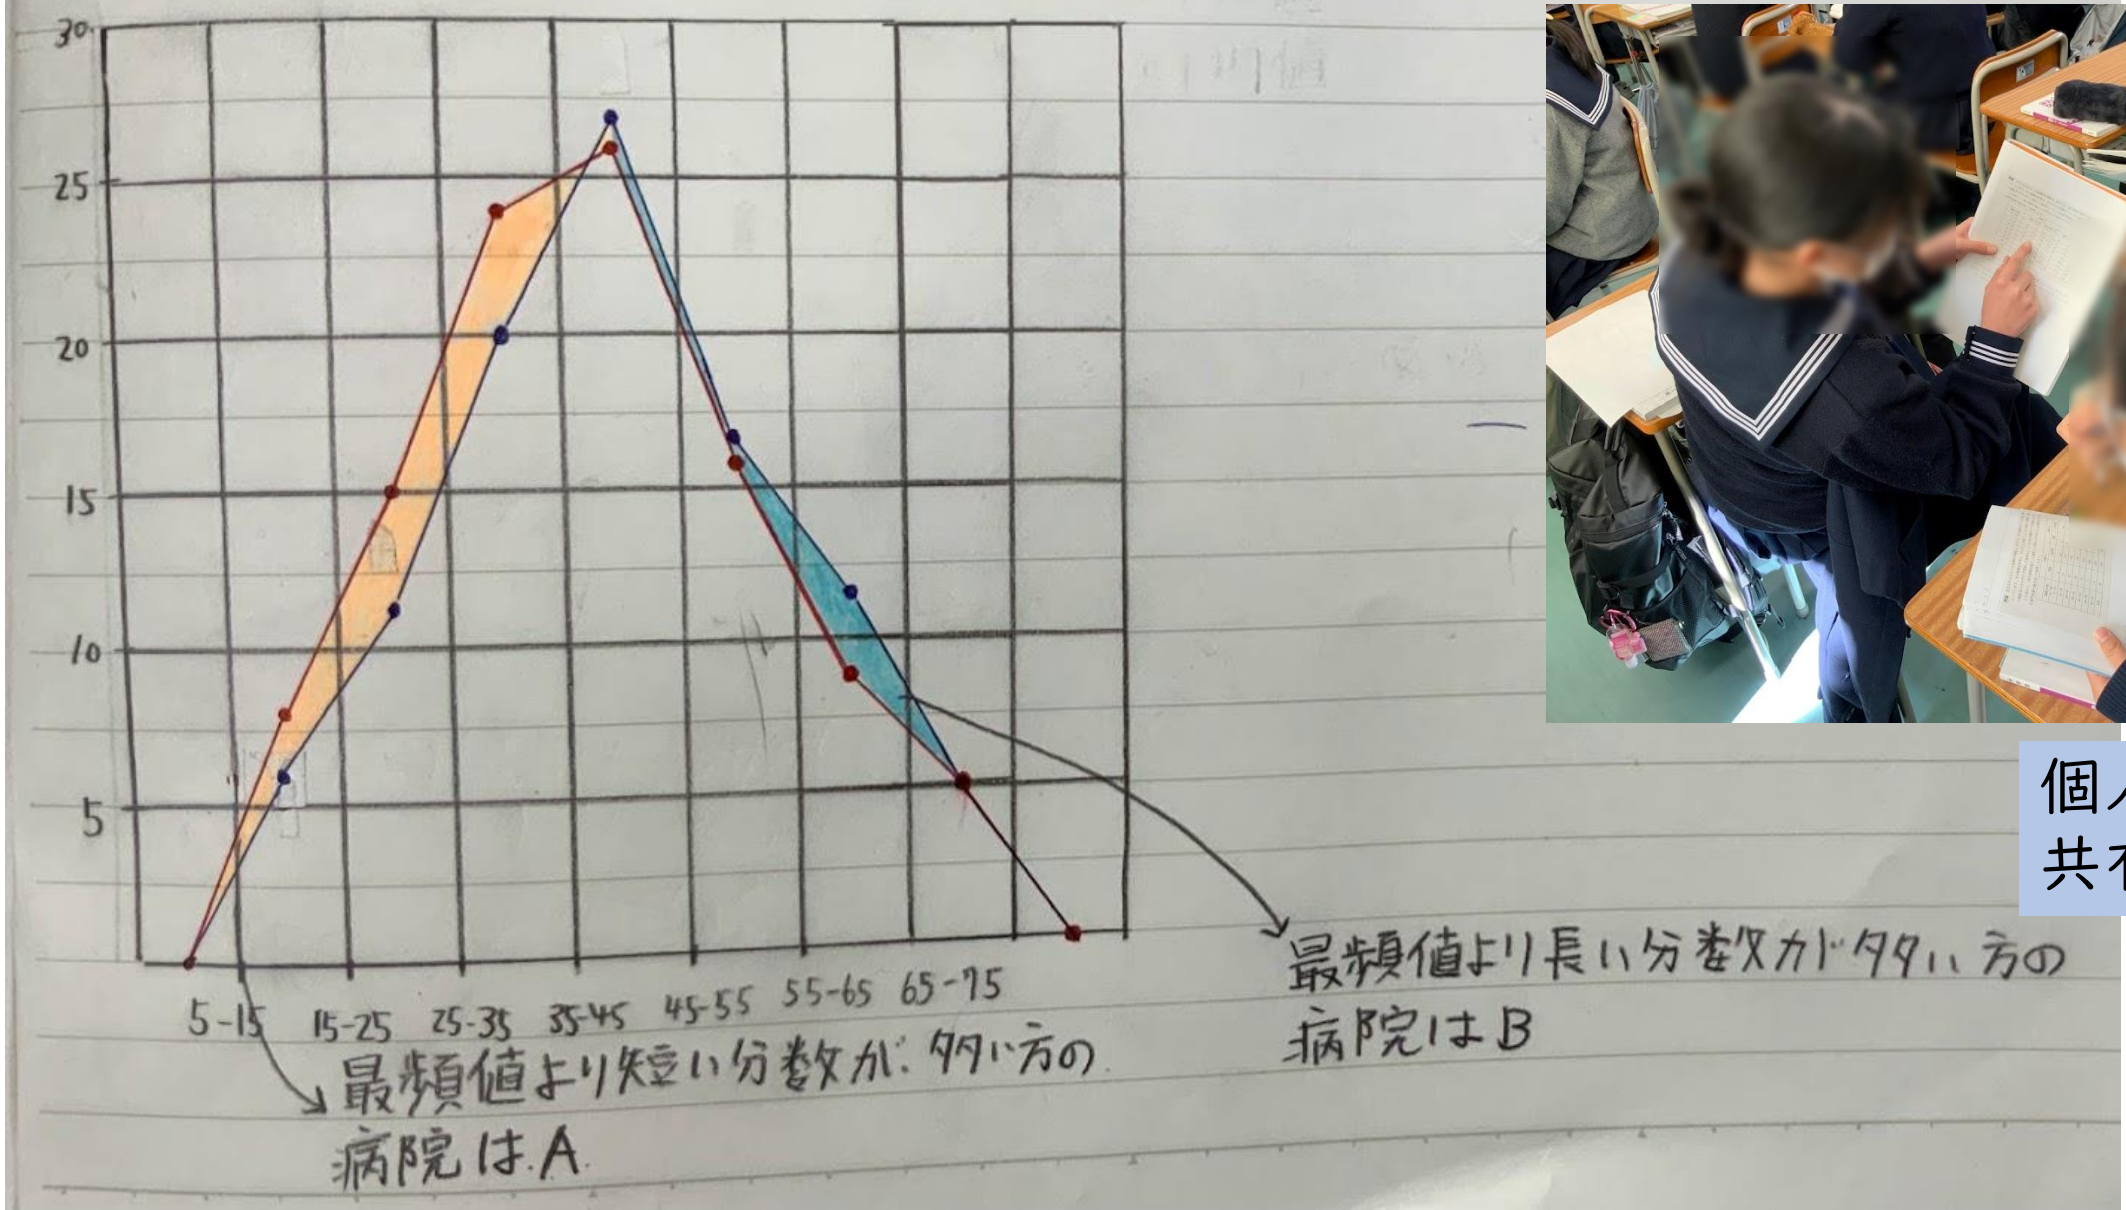 30
25
20
15
10
5
5-15 15-25 25-35 35-45 45-55 55-65 65-75
最頻値より短い分数が多い方の
病院はA.
最頻値より長い分数が多い方の
病院はB
個
共